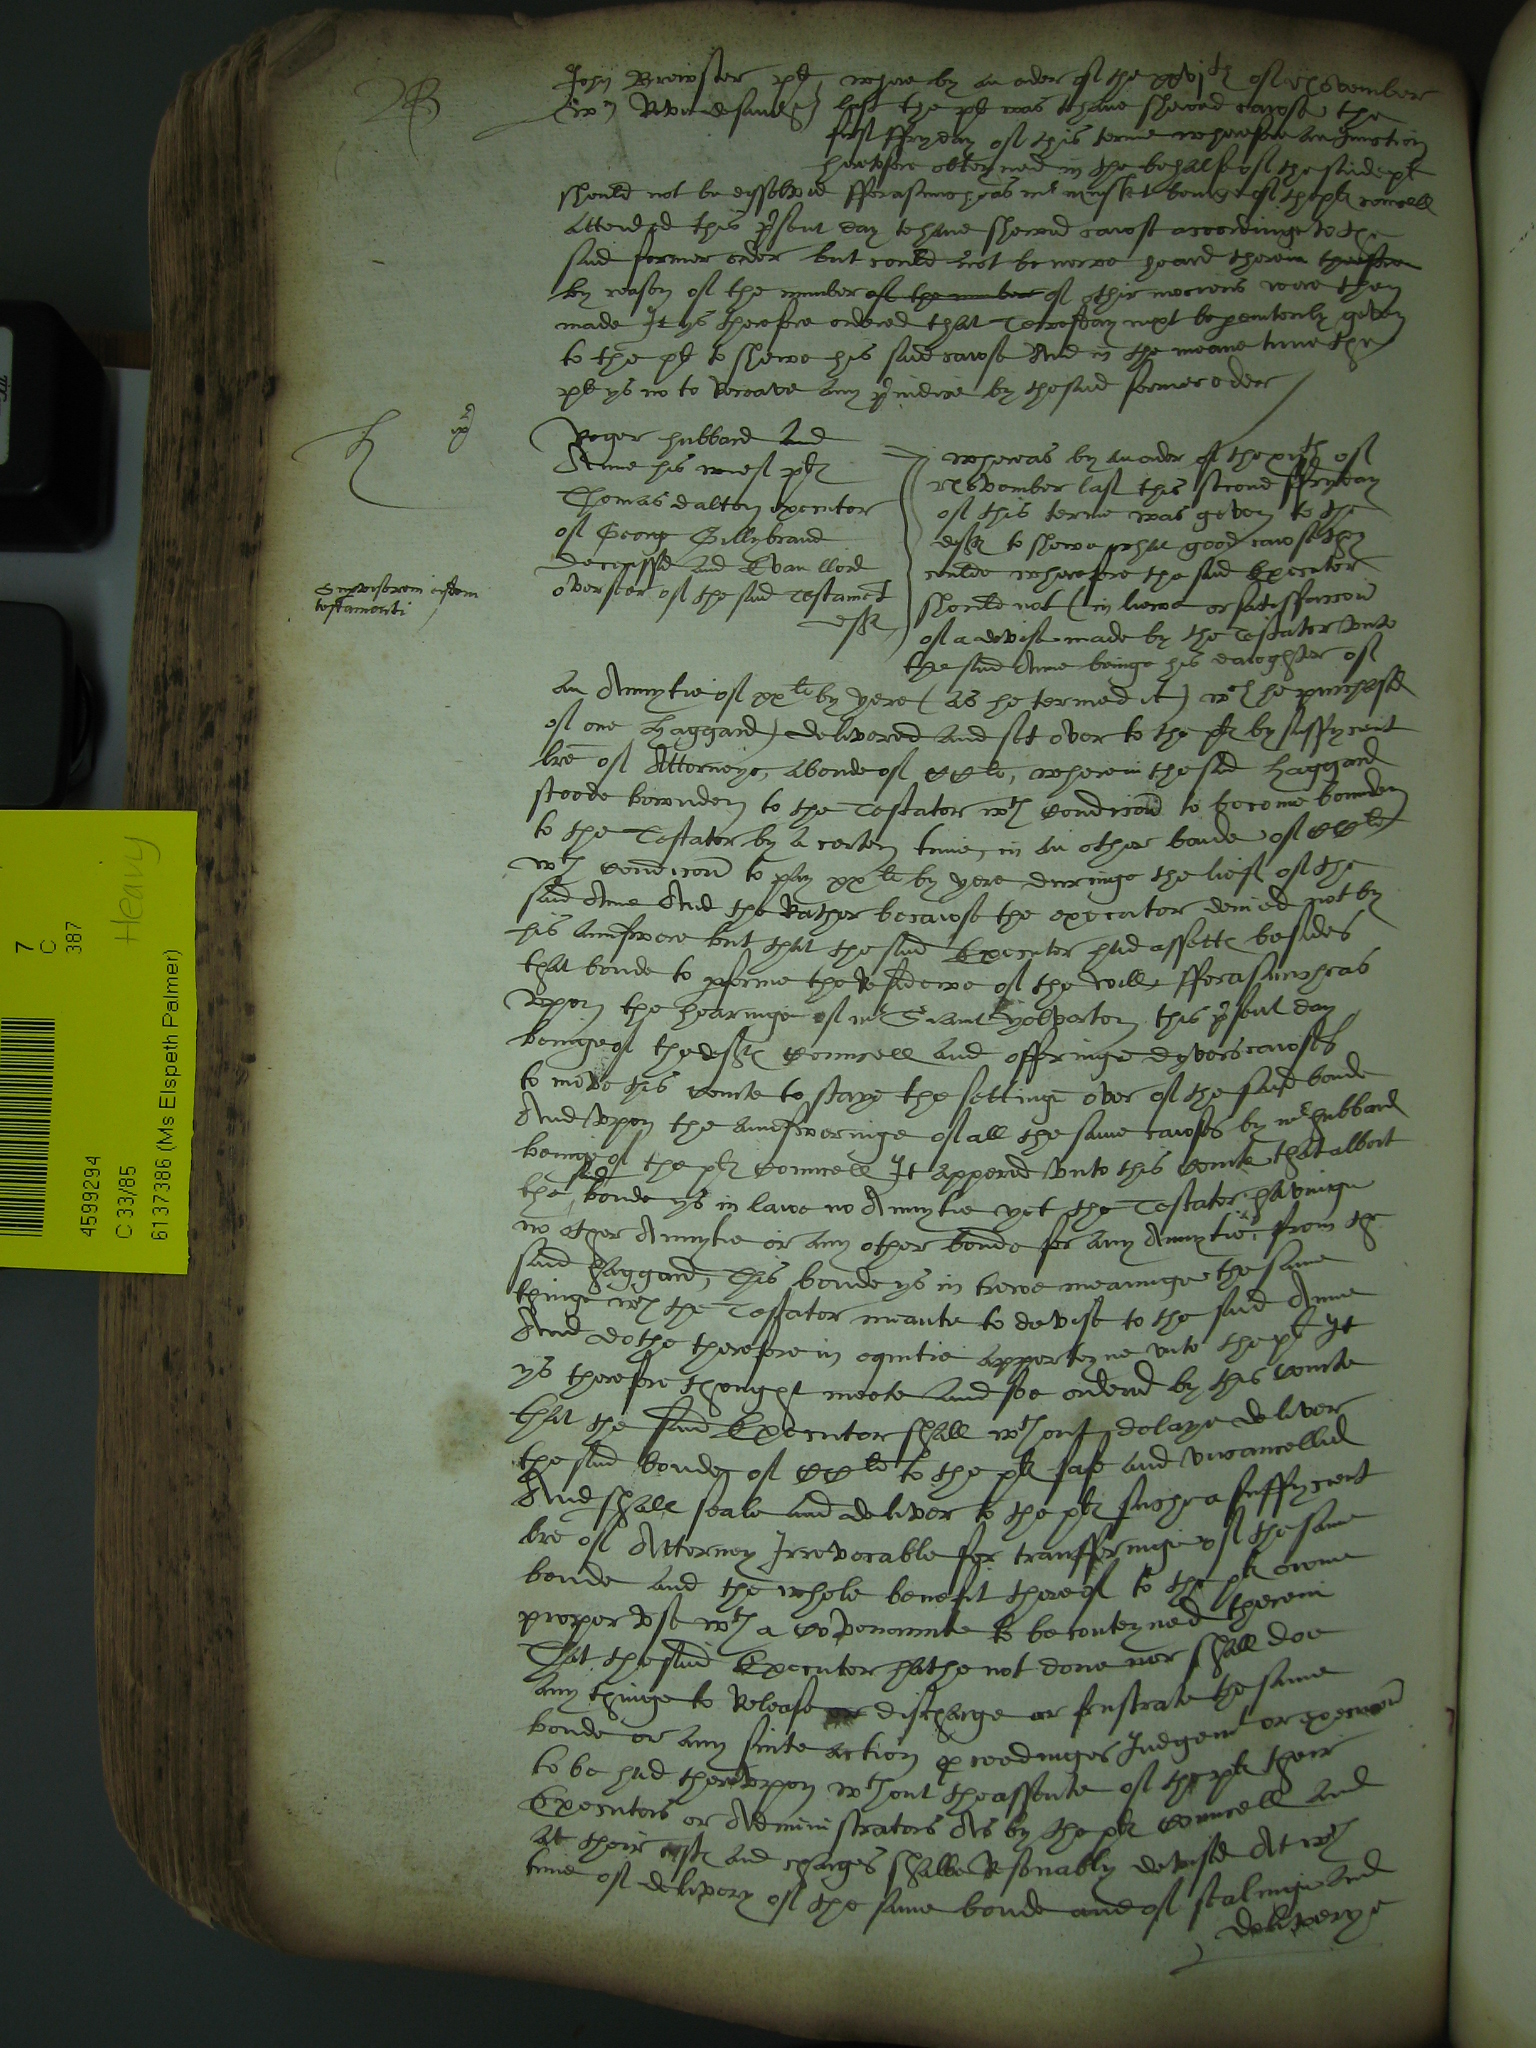 B
John Brewster pl, where by an order of the xxvith of November
last the pl was to have shewed cawse the
first ffryday of this terme wherefore an Iniunction
heretofore obteyned in the behalfe of the said pl
should not be dissolved fforasmuch as mr beinge of the pl councell
Attended this psent day to have shewed cawse accordinge to the
said former order but could not be heard therein therefore
by reason of the number of the number of other mocions were then
made It ys therefore ordered that Tewesday next be peremtorily geven
to the pl to shewe his said cawse And in the meane time the
pl ys no to Receave any piudice by the said former order
H
Roger Hubbard And
Anne his wief pl
Thomas Dalton executor
of George Gillybrand
Deceassed and Evan lloid
overseer of the said Testament
deft
Supervisorem eiusdem
testamenti
whereas by an order of the xith of
November last this second ffryday
of this terme was geven to the
deft to shewe what good cawse they
coulde wherefore the said Executor
should not (in liewe or satisffaccon
of a devise made by the Testator unto
the said Anne beinge his dawghter of
an Annytie of xxli by yere (as he termed it) wch he purchased
of one Haggard) delivered and set over to the pl by suffycient
lre of Attorneye, a bonde of CCli, wherein the said Haggard
stoode bownden to the Testator wth Condicon to become bounden
to the Testator by a certen time, in an other bonde of CCli
wth Condicon to pay xxli by yere duringe the lief of the
said Anne And the Rather becawse the executor denied not by
his Aunswere but that the said Executor had assetts besides
that bonde to pforme the Residewe of the will, fforasmuch as
upon the hearinge of mr Seriant Yelverton this psent day
beinge of the defts Councell and offeringe dyvers cawses
to move this Courte to staye the setting over of the said bonde
And upon the Aunsweringe of all the same cawses by mr Hubbard
being of the pl Councell It appered unto this Courte that albeit
the said bonde ys in lawe no Annytie yet the Testator havinge
no other Annytie or any other bonde for any Annytie, from the
said Haggard, This bonde ys in trewe meaninge the same
thinge wch the Testator meante to devise to the said Anne
And dothe therefore in equitie apperteyne unto the pl It
ys therefore thought meete and soe ordered by this Courte
that the said Executor shall wthout delaye deliver
the said bonde of CCli to the pl safe and uncancelled
And shall seale and deliver to the pl suche a suffycient
lre of Attorney Irrevocable for transfferringe of the same
bonde and the whole benefit thereof to the pl owne
proper use wth a Covenaunte to be conteyned therein
That the said Executor hathe not done nor shall doe
any thinge to Release or discharge or frustrate the same
bonde or any suite action pceedinges Iudgemt or execucon
to be had thereupon wthout the assente of the pl their
Executors or Administrators As by the pl Councell and
at their costs and charges shalbe Resonably devised At wch
time of delivery of the same bonde and of sealinge and
deliverye
4599294
C 33/85
6137386 (Ms Elspeth Palmer)
7
C
387
Heavy